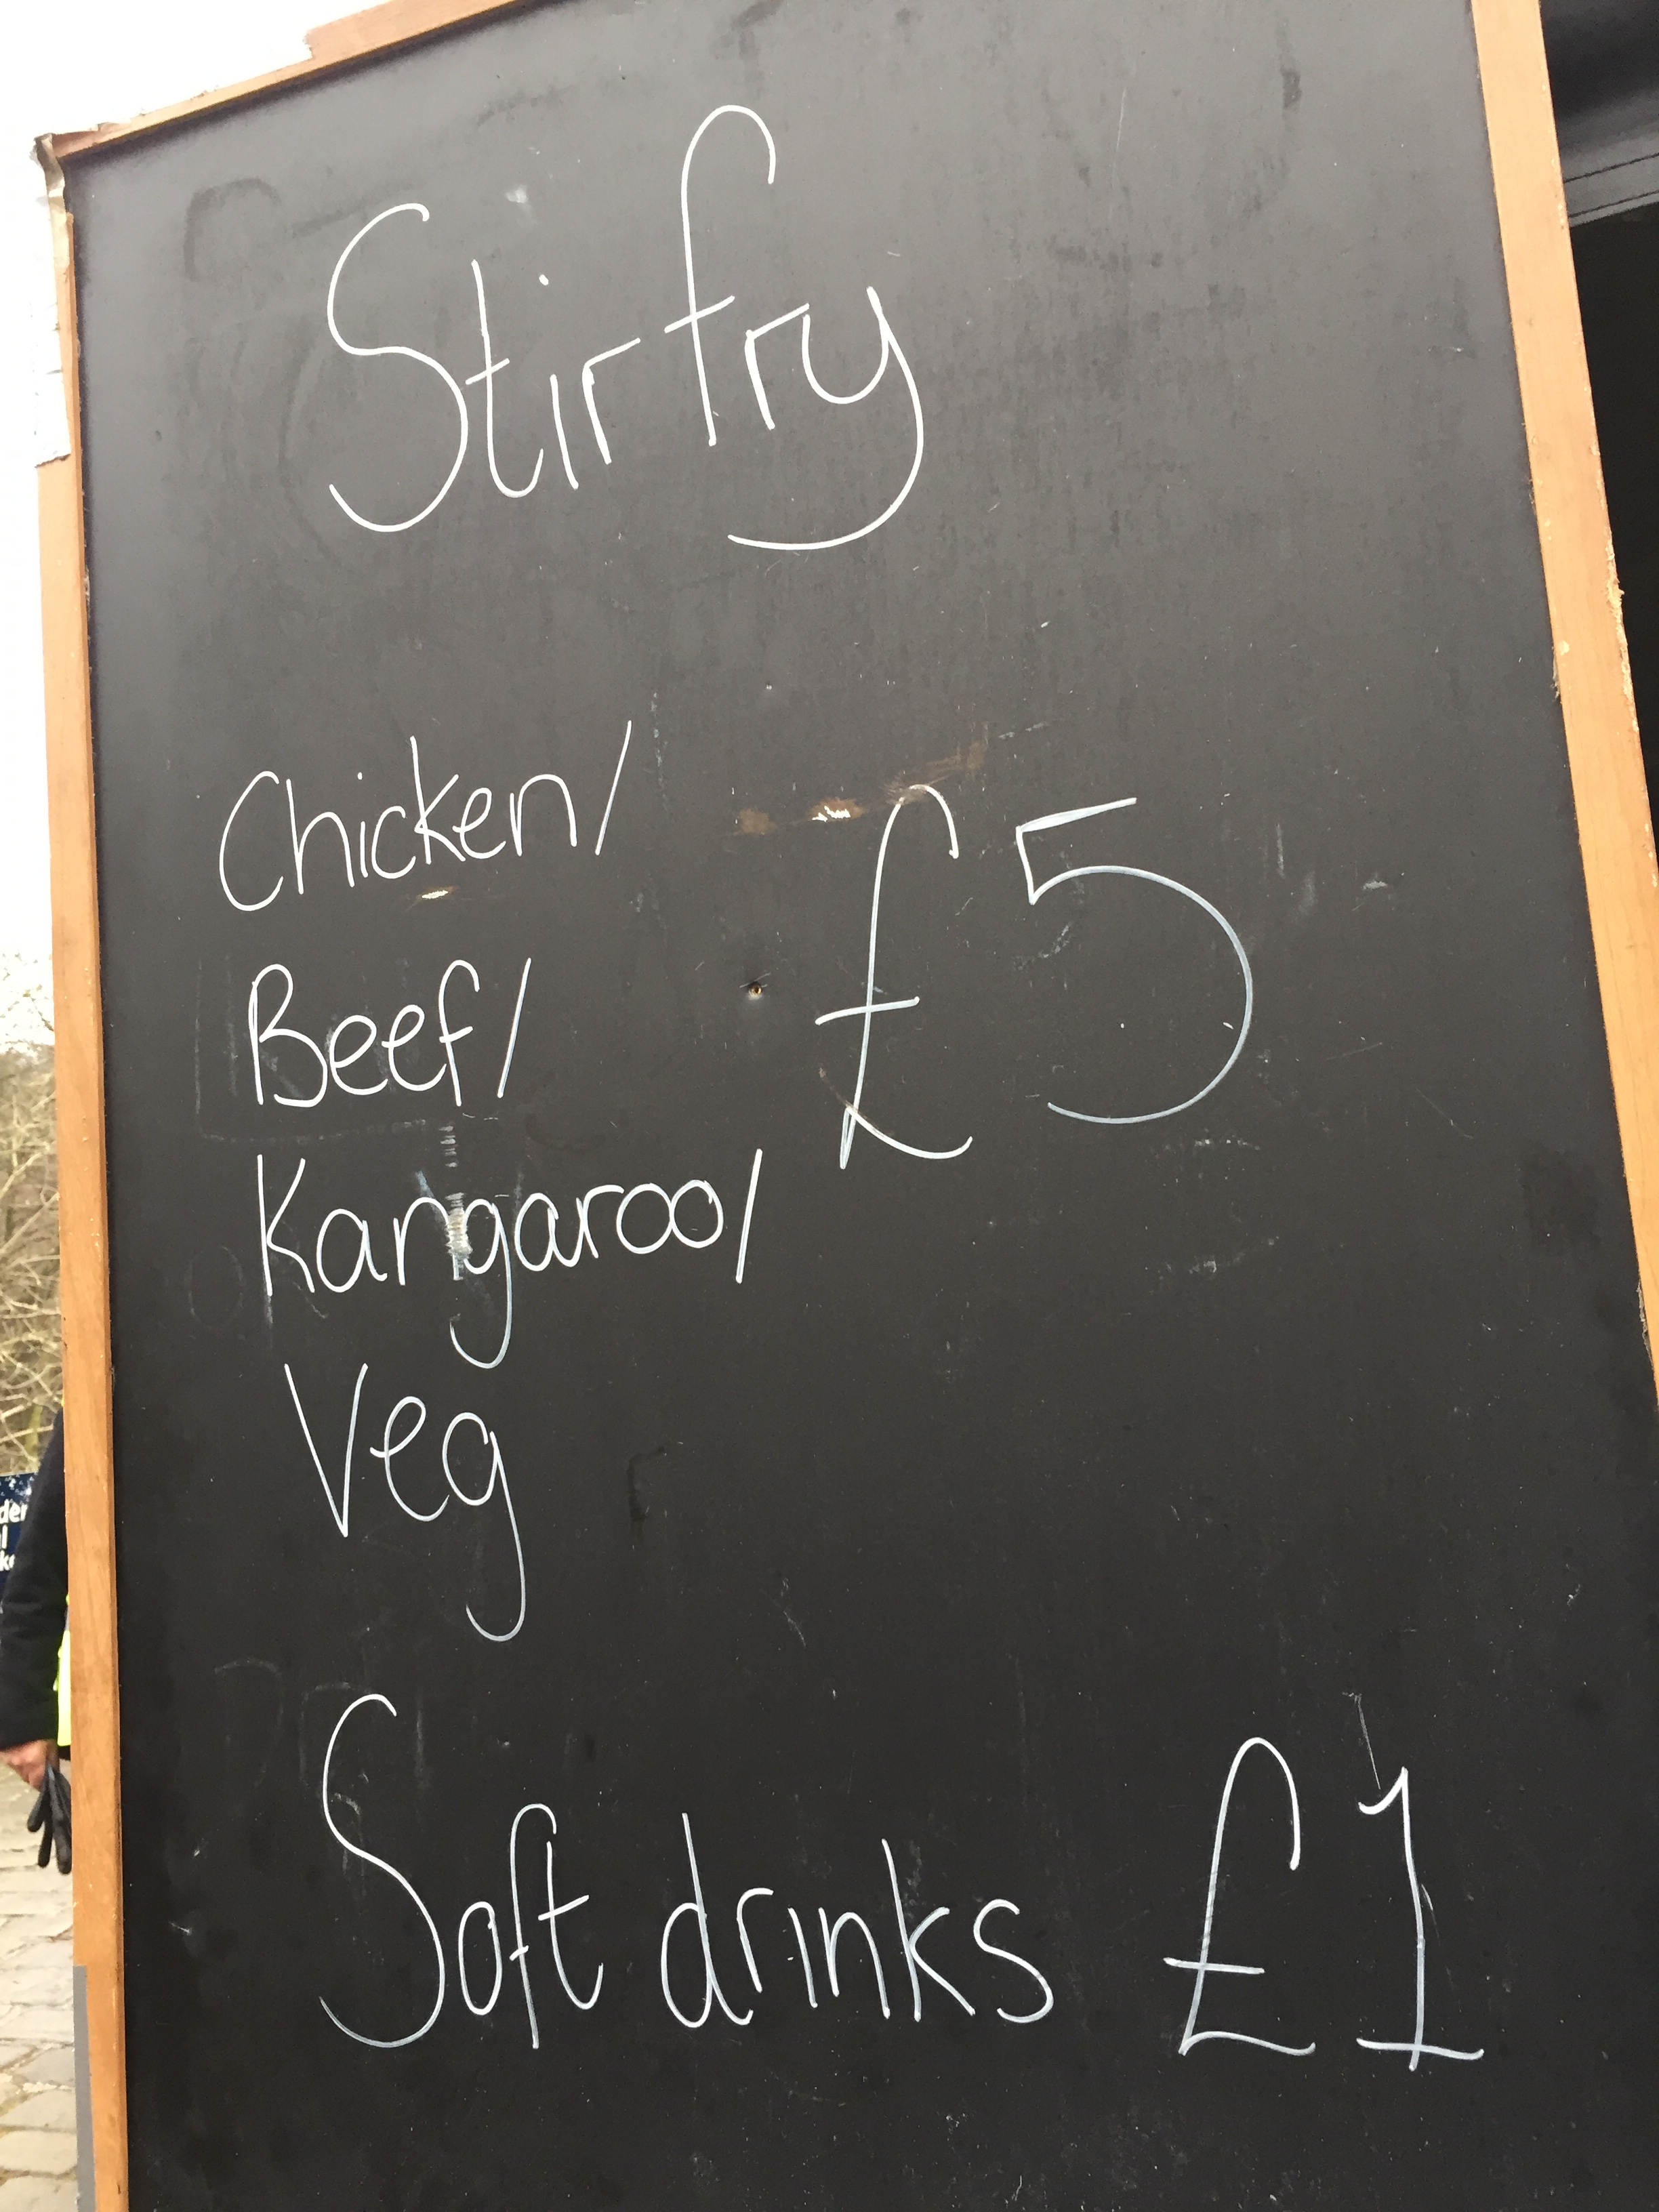 Stir fry
Chicken/
Beef/
£5
Kangaroo/
Veg
Soft drinks £1